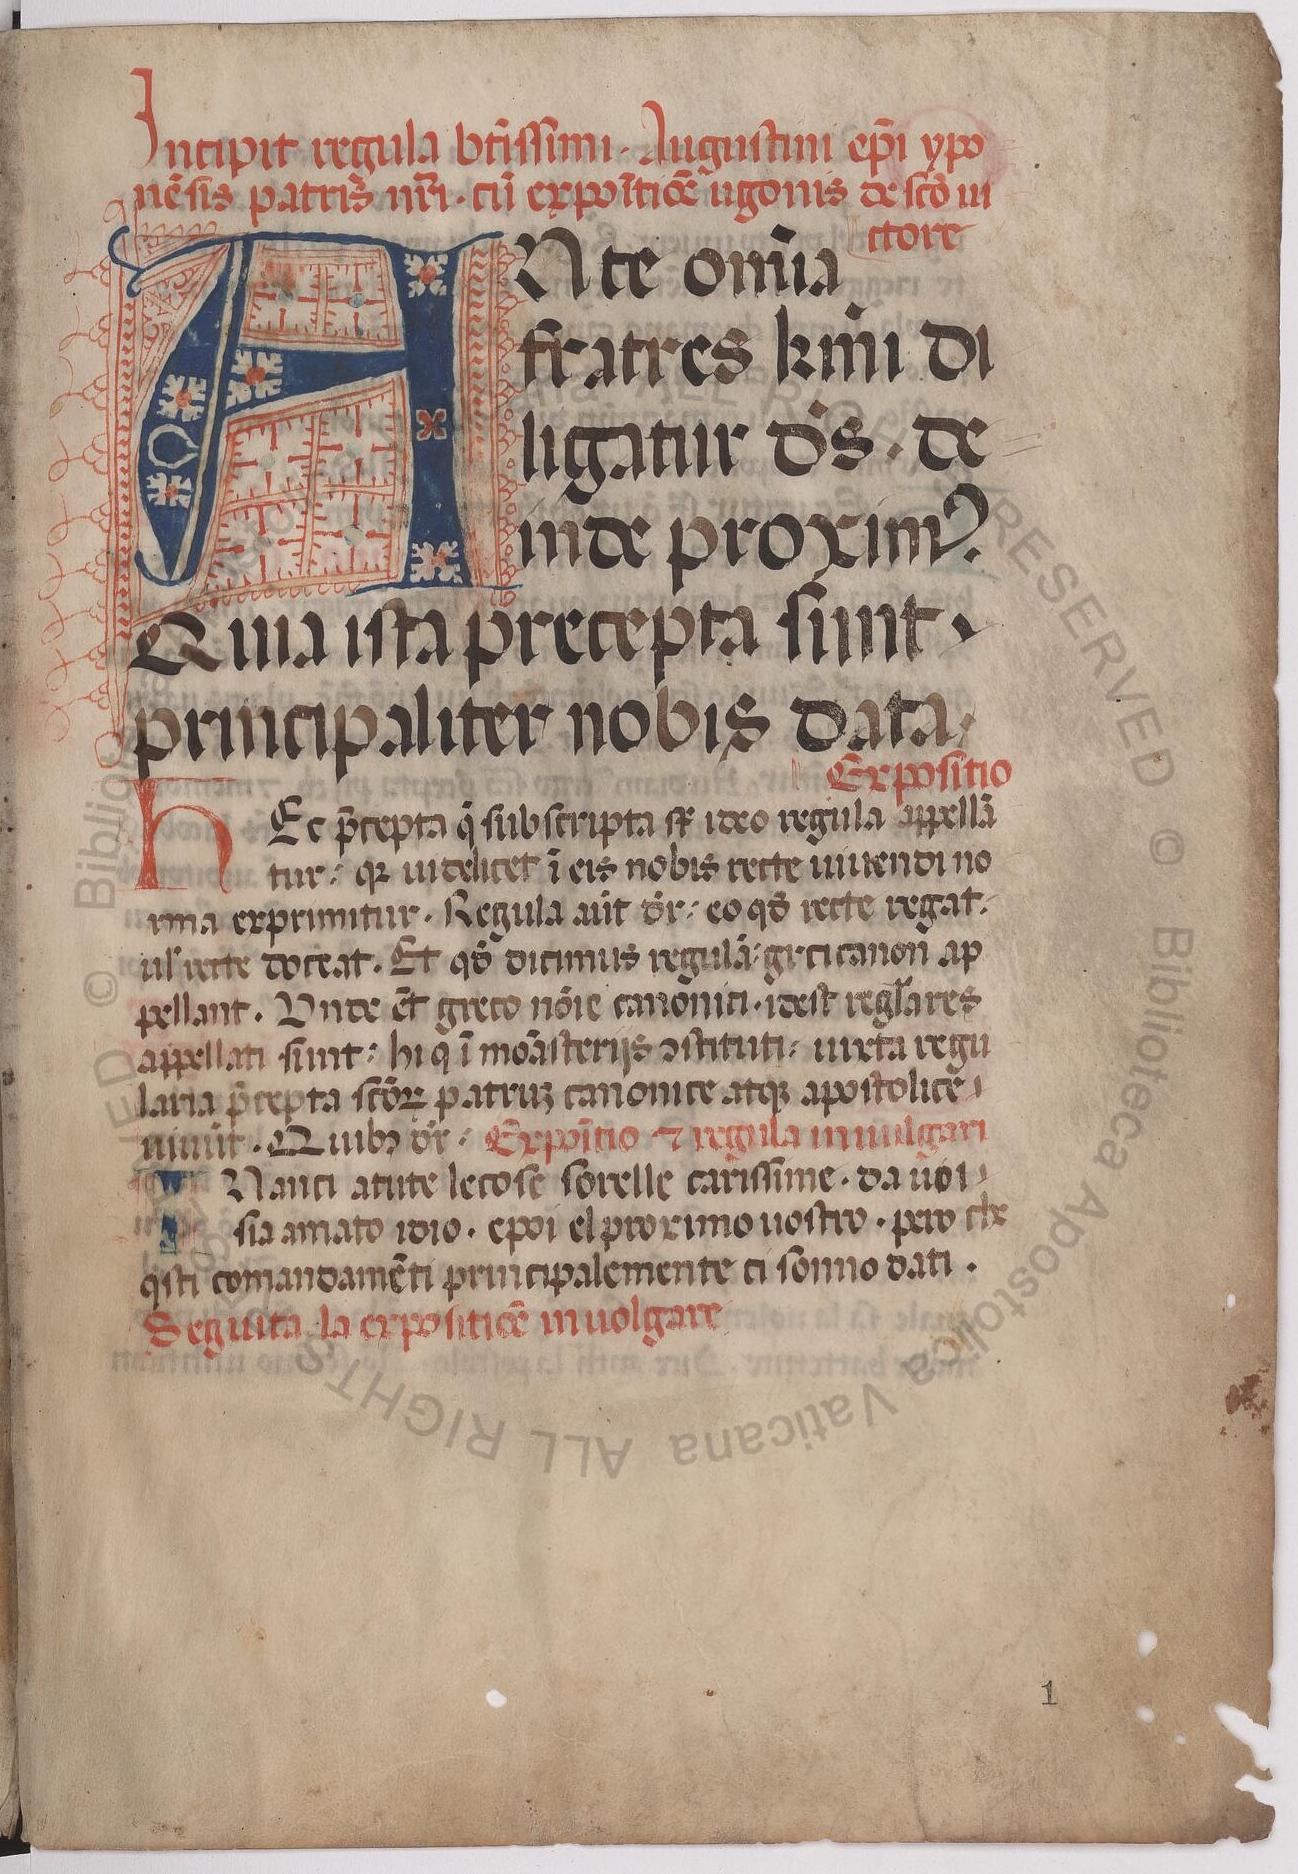 Incipit regula btīssimi · Augustini ep̄i ypo
nēsis patris nr̄i · cū expoītiōe ugonis de scō ui
ctore
ANte om̄ia
fratres kmī di
ligatur d̄s · de
inde proximꝰ
Quia ista precepta sunt ·
principaliter nobis data ·
Expositio
hEc p̄cepta q̄ subscripta sт̄ ideo regula appellā
tur : qꝛ uidelicet ī eis nobis recte uiuendi no
rma exprimitur · Regula aūt dr̄ : eo qd̄ recte regat :
ul' recte doceat · Et qd̄ dicimus regulā : greci canon̄ ap
pellant · Vnde et̄ greco nōie canonici · idest reglares
appellati sunt : hi q ī moāsterijs ꝯstituti : iuxta regu
laria p̄cepta scōꝝ patruꝫ canonice atqꝫ apostolice
uiuūt · Quibꝫ dr̄ : Expoītio ⁊ regula in uulgari
INanci atute lecose sorelle carissime · da uoi
sia amato idio · epoi el proximo uostro · pero che
qsti comandamēti principalemente ci sonno dati ·
Seguita la expositiōe in uolgare
1
© Biblioteca Apostolica Vaticana ALL RIGHTS RESERVED